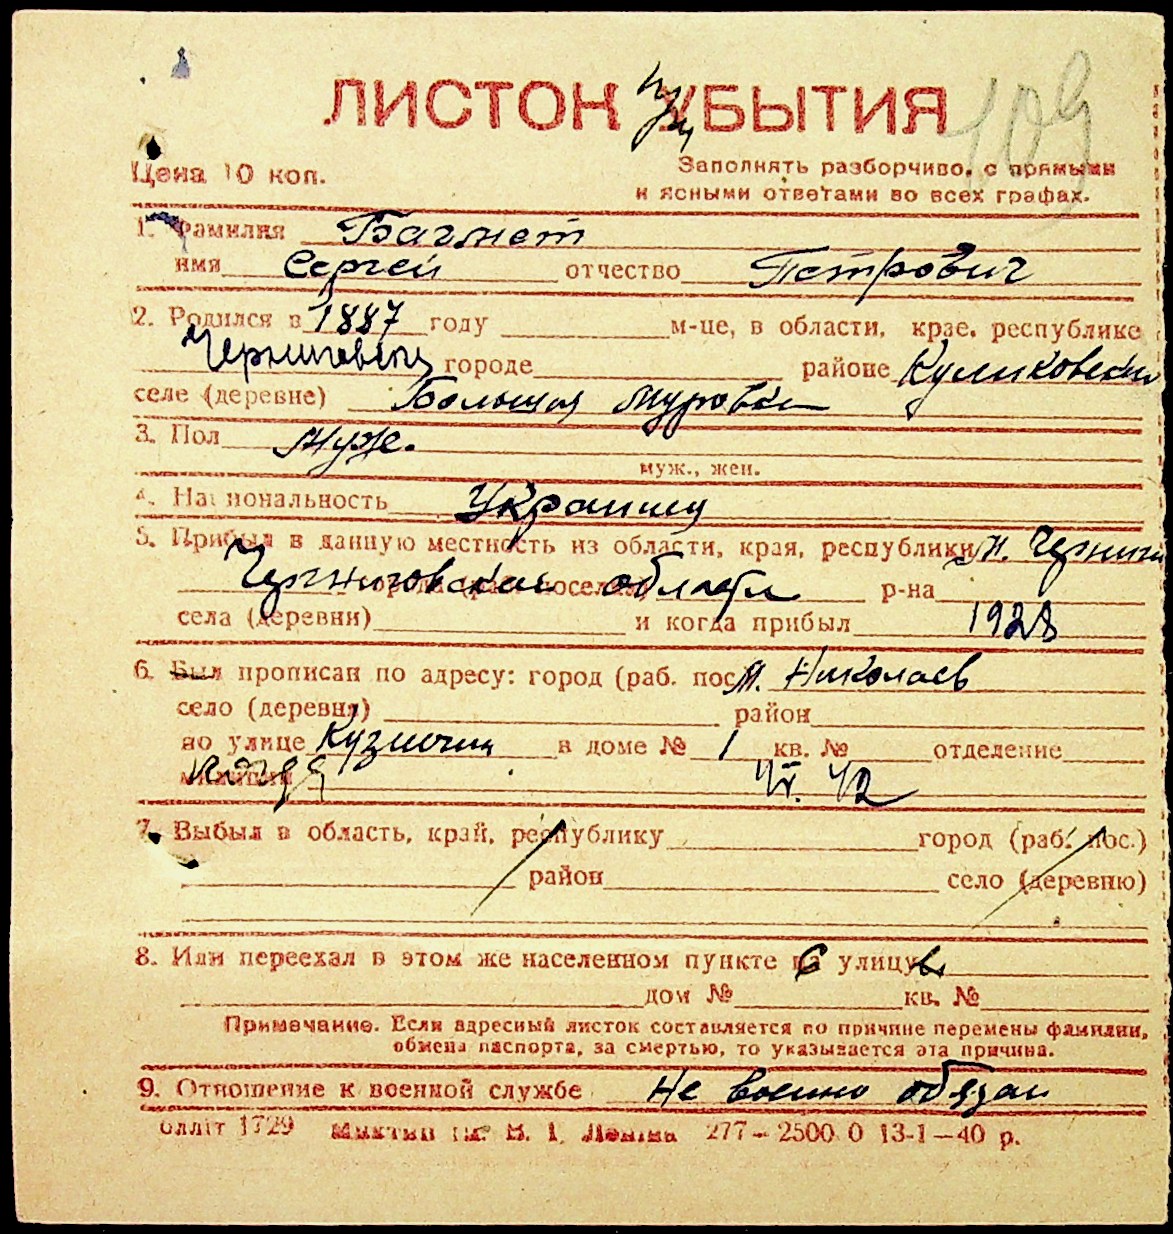 ЛИСТОК УБЫТИЯ
109
Цена 10 коп.
Заполнять разборчиво, с прямыми
и ясными ответами во всех графах.
1. Фамилия Багмет
имя Сергей отчество Петрович
2. Родился в 1887 году м-це, в области, крае, республике
городе районе Куликовский
селе (деревне) Большая Муровка
3. Пол муж.
муж., жен.
4. Национальность Украинец
5. Прибыл в данную местность из области, края, республики
Черниговская области р-на
села (деревни) и когда прибыл 1928
6. Был прописан по адресу: город (раб. пос. Николаев
село (деревня) район
по улице в доме № 1 кв. № отделение
милиции 42
7. Выбыл в область, край, республику город (раб. пос.)
район село (деревню)
8. Или переехал в этом же населенном пункте на улицу
дом № кв. №
Примечание. Если адресный листок составляется по причине перемены фамилии,
обмена паспорта, за смертью, то указывается эта причина.
9. Отношение к военной службе Не военно обязан
1729 277—2500 0 13-1—40 р.